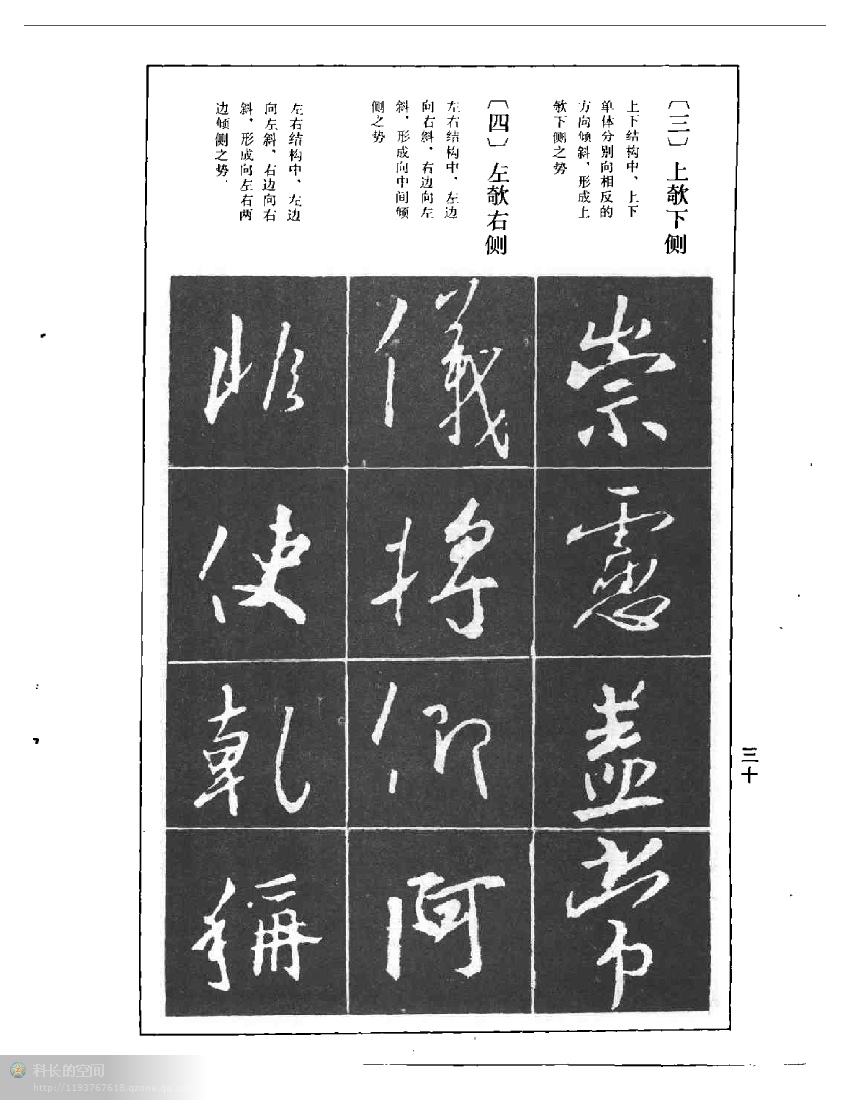 〔三〕上欹下侧
上下结构中、上下
单体分别向相反的
方向倾斜、形成上
欹下侧之势
〔四〕左欹右侧
左右结构中、左边
向右斜、右边向左
斜、形成向中间倾
侧之势
左右结构中、左边
向左斜、右边向右
斜、形成向左右两
边倾侧之势.
崇
盖
常
儀
将
仰
阿
使
乾
稱
三十
科长的空间